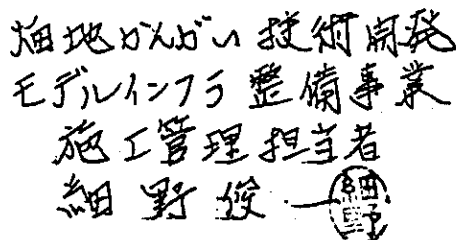 畑地かんがい技術開発
モデルインフラ整備事業
施工管理担当者
細野俊一
細野